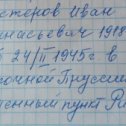 стеров Иван
анасьевич 1918
24/II 1945 г. в
точной Пруссии
енный пункт Ра